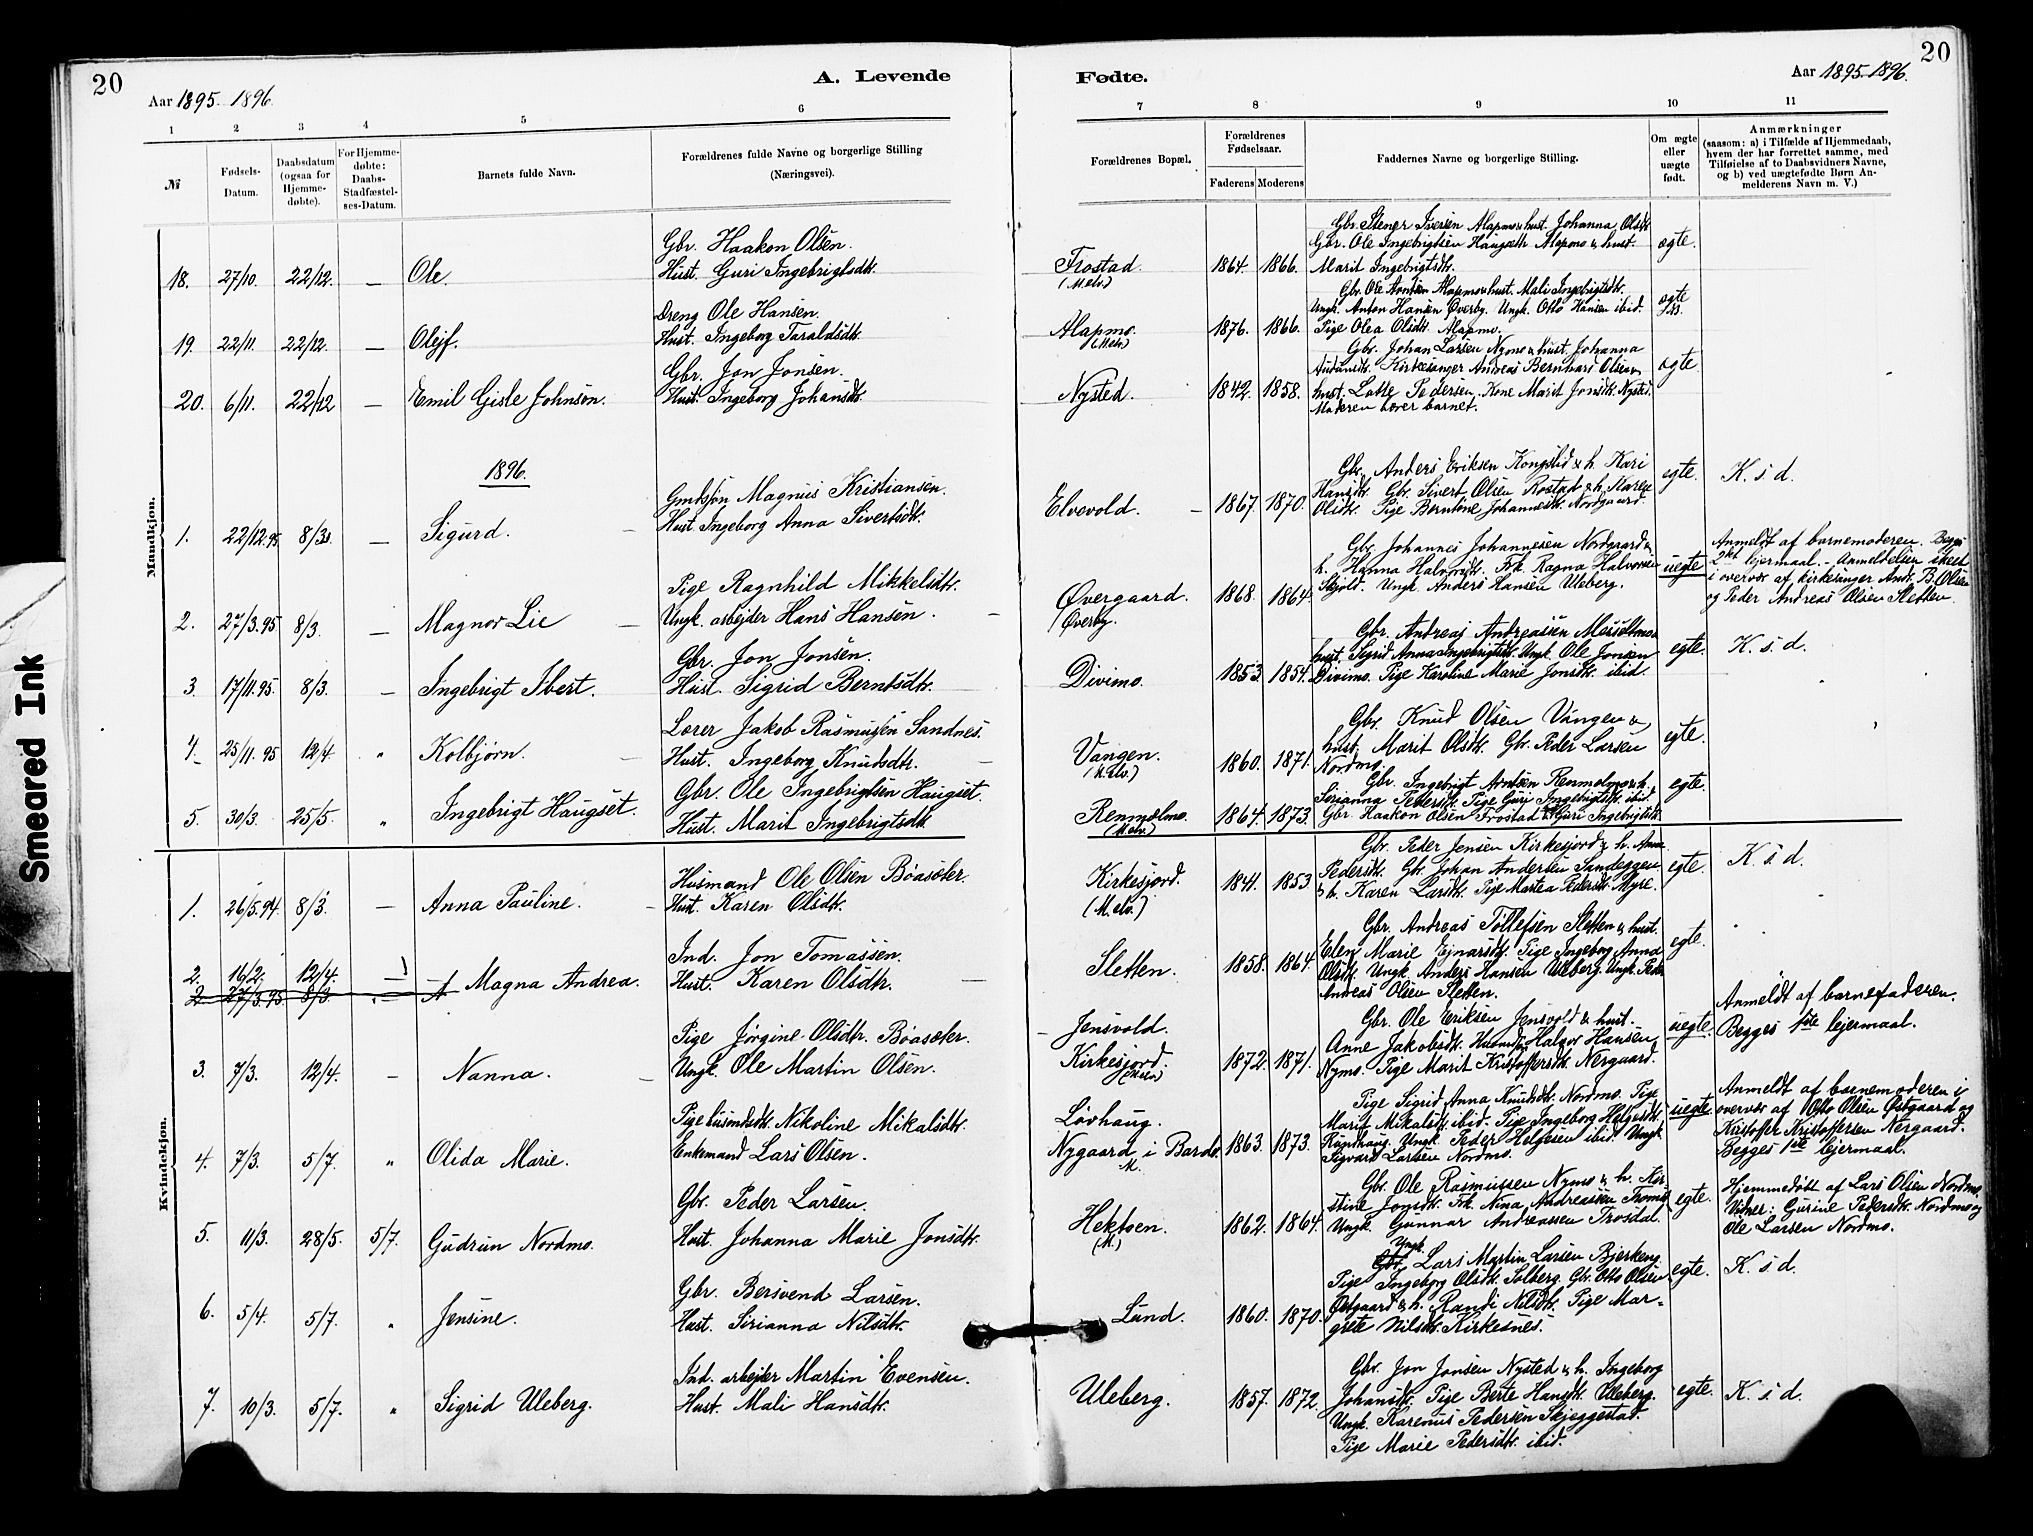 20
Aar 1895-1896.
A. Levende
1 2 3 4 5 6
№
Fødsels-
Datum.
Daabsdatum
(ogsaa for
Hjemme-
døbte).
For Hjemme-
døbte:
Daabs-
Stadfæstel-
ses-Datum.
Barnets fulde Navn.
Forældrenes fulde Navne og borgerlige Stilling
(Næringsvei).
Mandkjøn.
Gbr. Haakon Olsen.
18. 27/10. 22/12. — Ole. Hust. Guri Ingebrigtsdtr.
Dreng Ole Hansen.
19. 22/11. 22/12. — Olejf. Hust. Ingeborg Taraldsdtr.
Gbr. Jon Jonsen.
20. 6/11. 22/12 — Emil Gisle Johnson. Hust. Ingeborg Johansdtr.
1896.
Gmdssøn Magnus Kristiansen.
1. 22/12.95 8/3. — Sigurd. — Hust. Ingeborg Anna Sivertsdtr.
Pige Ragnhild Mikkelsdtr.
2. 27/3.95 8/3. — Magnor Lie — Ungk. arbejder Hans Hansen.
Gbr. Jon Jonsen.
3. 17/11.95 8/3. — Ingebrigt Ibert. Hust. Sigrid Berntsdtr.
Lærer Jakob Rasmussen Sandnes.
4. 25/11.95 12/4. " Kolbjørn. — Hust. Ingeborg Knudsdtr.
Gbr. Ole Ingebrigtsen Haugset.
5. 30/3. 25/5. " Ingebrigt Haugset. Hust. Marit Ingebrigtsdtr.
Kvindekjøn.
Husmand Ole Olsen Bøasæter.
1. 26/5.94. 8/3. — Anna Pauline. — Hust. Karen Olsdtr.
Ind. Jon Tomassen.
2. 16/2. 12/4. — Magna Andrea. Hust. Karen Olsdtr.
2. 27/3.95. 8/3. — A
Pige Jørgine Olsdtr. Bøasæter.
3. 7/3. 12/4. — Nanna. — Ungk. Ole Martin Olsen.
Pige Nikoline Mikalsdtr.
4. 7/3. 5/7. " Olida Marie. Enkemand Lars Olsen.
Gbr. Peder Larsen.
5. 11/3. 28/5. 5/7. Gudrun Nordmo. Hust. Johanna Marie Jonsdtr.
Gbr. Bersvend Larsen.
6. 5/4. 5/7. " Jensine. Hust. Sirianna Nilsdtr.
Ind. arbejder Martin Evensen.
7. 10/3. 5/7. " Sigrid Uleberg. Hust. Mali Hansdtr.
Fødte.
Aar 1895-1896.
20
7 8 9 10 11
Forældrenes Bopæl.
Forældrenes
Fødselsaar.
Faderens Moderens
Faddernes Navne og borgerlige Stilling.
Om ægte
eller
uægte
født.
Anmærkninger
(saasom: a) i Tilfælde af Hjemmedaab,
hvem der har forrettet samme, med
Tilføielse af to Daabsvidners Navne,
og b) ved uægtefødte Børn An-
melderens Navn m. V.)
Frostad.
(M.elv.)
1864. 1866.
Gbr. Stener Iversen Alapmo & hust. Johanna Olsdtr.
Gbr. Ole Ingebrigtsen Haugseth Alapmo & hust.
Marit Ingebrigtsdtr.
ægte.
Alapmo.
(M.elv.)
1876. 1866.
Gbr. Ole Arntsen Alapmo & hust. Mali Ingebrigtsdtr.
Ungk. Anton Hansen Øverby. Ungk. Otto Hansen ibid.
Pige Olea Olsdtr. Alapmo.
ægte
Nysted.
1842. 1858.
Gbr. Johan Larsen Nymo & hust. Johanna
Audunsdtr. Kirkesanger Andreas Bernhard Olsen &
hust. Lotte Pedersen. Kone Marit Jonsdtr. Nysted.
Moderen bærer barnet.
ægte
Elvevold. —
1867. 1870.
Gbr. Anders Eriksen Kongslid & h. Kari
Hansdtr. Gbr. Sivert Olsen Rostad & h. Maren
Olsdtr. Pige Berntine Johannesdtr. Nordgaard.
egte.
K. s. d.
Øvergaard.
Øverby.
1868. 1864.
Gbr. Johannes Johannesen Nordgaard &
h. Hanna Halvorsdtr. Frk. Ragna Halvorsen
Skjold. Ungk. Anders Hansen Uleberg.
uegte
Anmeldt af barnemoderen. Begges
2det lejermaal. - Anmeldelsen skeed
i overvær af kirkesanger Andr. B. Olsen
og Peder Andreas Olsen Sletten.
Divimo.
1853. 1854.
Gbr. Andreas Andreassen Messeltmo &
hust. Sigrid Anna Ingebrigtsdtr. Ungk. Ole Jonsen
Divimo. Pige Karoline Marie Jonsdtr. ibid.
egte.
K. s. d.
Vangen.
(M.elv.)
1860. 1871.
Gbr. Knud Olsen Vangen &
hust. Marit Olsdtr. Gbr. Peder Larsen
Nordmo.
egte.
Renmælmo.
(M.elv.)
1864. 1873.
Gbr. Ingebrigt Arntsen Renmælmo & h.
Serianna Pedersdtr. Pige Guri Ingebrigtsdtr. ibid.
Gbr. Haakon Olsen Frostad & h. Guri Ingebrigtsdtr.
egte.
Kirkesjord.
(M.elv.)
1841. 1853
Gbr. Peder Jensen Kirkesjord & h. Anna
Pedersdtr. Gbr. Johan Andersen Sandeggen
& h. Karen Larsdtr. Pige Martea Pedersdtr. Myre.
egte.
K. s. d.
Sletten.
1858. 1864.
Gbr. Andreas Tollefsen Sletten & hust.
Elen Marie Ejnarsdtr. Pige Ingeborg Anna
Olsdtr. Ungk. Anders Hansen Uleberg. Ungk. Peder
Andreas Olsen Sletten.
egte.
Jensvold.
Kirkesjord.
(M.elv.)
1872. 1871.
Gbr. Ole Eriksen Jensvold & hust.
Anne Jakobsdtr. Husmand Halvor Hansen
Nymo. Pige Marit Kristoffersdtr. Nergaard.
uegte.
Anmeldt af barnefaderen.
Begges 1ste lejermaal.
Løvhaug.
Nygaard i Bardo.
M.
1863. 1873.
Pige Sigrid Anna Knudsdtr. Nordmo. Pige
Marit Mikalsdtr. ibid. Pige Ingeborg Helgesdtr.
Rundhaug. Ungk. Peder Helgesen ibid. Ungk.
Sigvard Larsen Nordmo.
uegte.
Anmeldt af barnemoderen i
overvær af Otto Olsen Østgaard og
Kristoffer Kristoffersen Nergaard.
Begges 1ste lejermaal.
Hektoen.
(M.)
1862. 1864.
Gbr. Ole Rasmussen Nymo & h. Kir-
stine Jonsdtr. Frk. Nina Andreassen Tromsø
Ungk. Gunnar Andreassen Trosdal.
egte.
Hjemmedøbt af Lars Olsen Nordmo.
Vidner: Gurine Pedersdtr. Nordmo og
Ole Larsen Nordmo.
Lund.
1860. 1870.
Ungk.
Gbr. Lars Martin Larsen Bjerkeng
Pige Ingeborg Olsdtr. Solberg. Gbr. Otto Olsen
Østgaard & h. Randi Nilsdtr. Pige Mar-
grete Nilsdtr. Kirkesnes.
egte.
K. s. d.
Uleberg.
1857. 1872.
Gbr. Jon Jonsen Nysted & h. Ingeborg
Johansdtr. Pige Berte Hansdtr. Uleberg.
Ungk. Karenus Pedersen Skjeggestad.
Pige Marie Pedersdtr. ibid.
egte.
K. s. d.
Smeared Ink